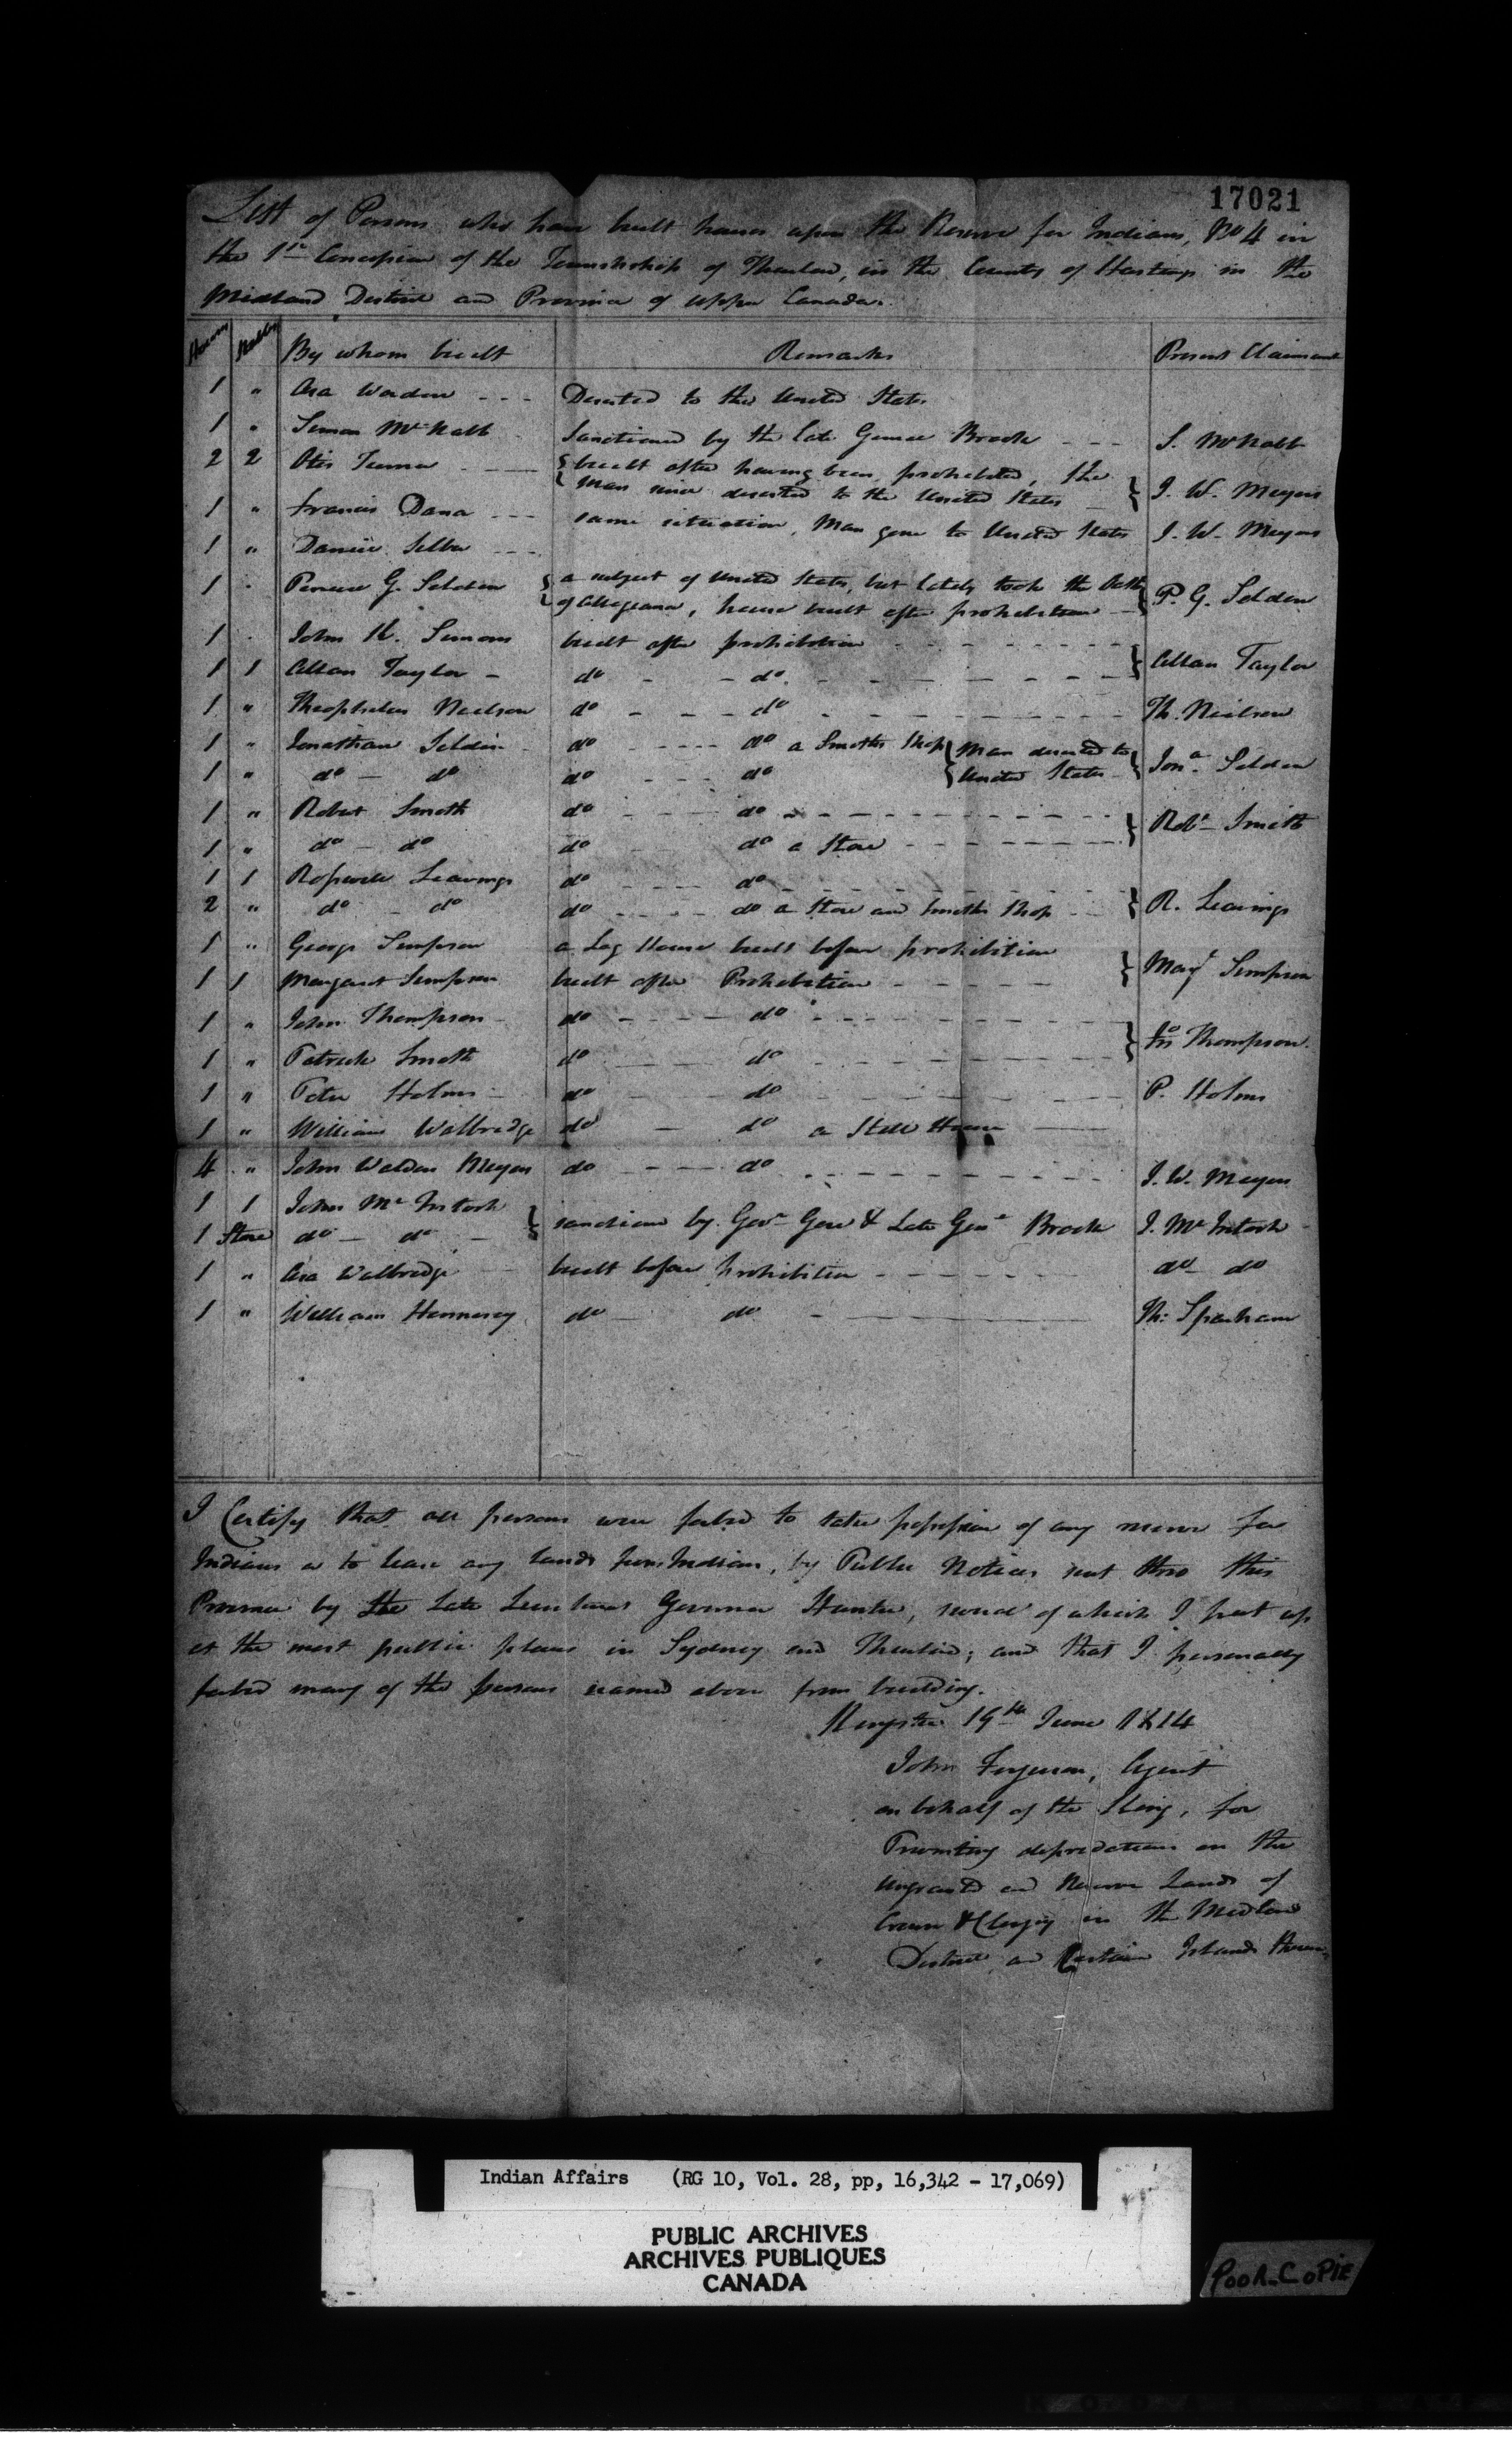 17021
List of Persons who have built houses upon the Reserve for Indians, No 4 in
the 1st Concession of the Township of Thurlow, in the County of Hastings in the
Midland District and Province of Upper Canada.
Houses Stables By whom built Remarks Present Claimant
1 " Asa Worden --- Deserted to the United States
1 " Simon McNabb Sanctioned by the late General Brock --- S. McNabb
2 2 Otis Turner built after having been prohibited, the
man since deserted to the United States J. W. Meyers
1 " Francis Dana --- same situation, Man gone to United States J. W. Meyers
1 " Daniel ---
1 " G. Selden a subject of United States, but lately took the Oath
of Allegiance, house built after prohibition P. G. Selden
1 " John K. Simons built after prohibition
1 1 Allan Taylor do do Allan Taylor
1 " Theophilus Neilson do do Th. Neilson
1 " Jonathan Selden do do a Smiths Shop Man deserted to
1 " do do do do United States Jona. Selden
1 " Robert Smith do do
1 " do do do do a Store Robt Smith
1 1 Roswell Leavings do do
2 " do do do do a Store and Smiths Shop R. Leavings
1 " George Simpson a Log House built before prohibition
1 1 Margaret Simpson built after Prohibition Margt Simpson
1 " John Thompson do do
1 " Patrick Smith do do Jno Thompson
1 " Peter Holms do do P. Holms
1 " William Walbredge do do a Still House
4 " John Walden Meyers do do J. W. Meyers
1 1 John McIntosh
1 Store do do sanctioned by Govr Gore & Late Genl Brock J. McIntosh
1 " Asa Walbredge built before prohibition do do
1 " William Hennesey do do Th: Sparham
I Certify that all persons were forbid to take possession of any reserve for
Indians or to lease any lands from Indians, by Public Notices sent thro this
Province by the Late Lieutenant Governor Hunter, several of which I put up
at the most public places in Sydney and Thurlow; and that I personally
forbid many of the persons named above from building.
Kingston 19th June 1814
John Ferguson, Agent
on behalf of the King, for
Preventing depredations on the
ungranted and Reserve Lands of
Crown & Clergy in the Midland
District, and Certain Islands therein
Indian Affairs (RG 10, Vol. 28, pp, 16,342 - 17,069)
PUBLIC ARCHIVES
ARCHIVES PUBLIQUES
CANADA
POOR COPIE